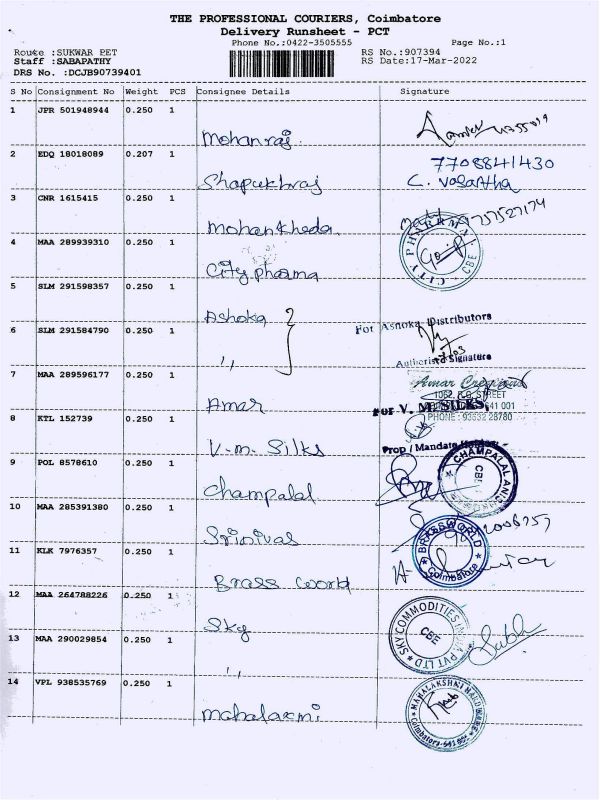 THE PROFESSIONAL COURIERS, Coimbatore
Delivery Runsheet - PCT
Phone No.:0422-3505555
Page No.:1
Route :SUKWAR PET
RS No.:907394
Staff :SABAPATHY
RS Date:17-Mar-2022
DRS No. :DCJB90739401
S No Consignment No Weight PCS Consignee Details Signature
1 JPR 501948944 0.250 1
Mohanraj
2 EDQ 18018089 0.207 1
7708841430
Shapukhraj C. Vasantha
3 CNR 1615415 0.250 1
Mohankheda
4 MAA 289939310 0.250 1
CITY PHARMA CBE
City pharma
5 SLM 291598357 0.250 1
Ashoka
For Ashoka Distributors
6 SLM 291584790 0.250 1
,,
Authorised Signature
7 MAA 289596177 0.250 1
Amar
Amar
641 001
PHONE : 93632 28780
8 KTL 152739 0.250 1
For V. M. SILKS,
V.m. Silks
Prop / Mandate Holder
9 POL 8578610 0.250 1
CHAMPALAL CBE
Champalal
10 MAA 285391380 0.250 1
Srinivas
11 KLK 7976357 0.250 1
Coimbatore
Brass world
12 MAA 264788226 0.250 1
SKY COMMODITIES PVT LTD CBE
Sky
13 MAA 290029854 0.250 1
,,
14 VPL 938535769 0.250 1
Coimbatore-641 001
mahalaxmi